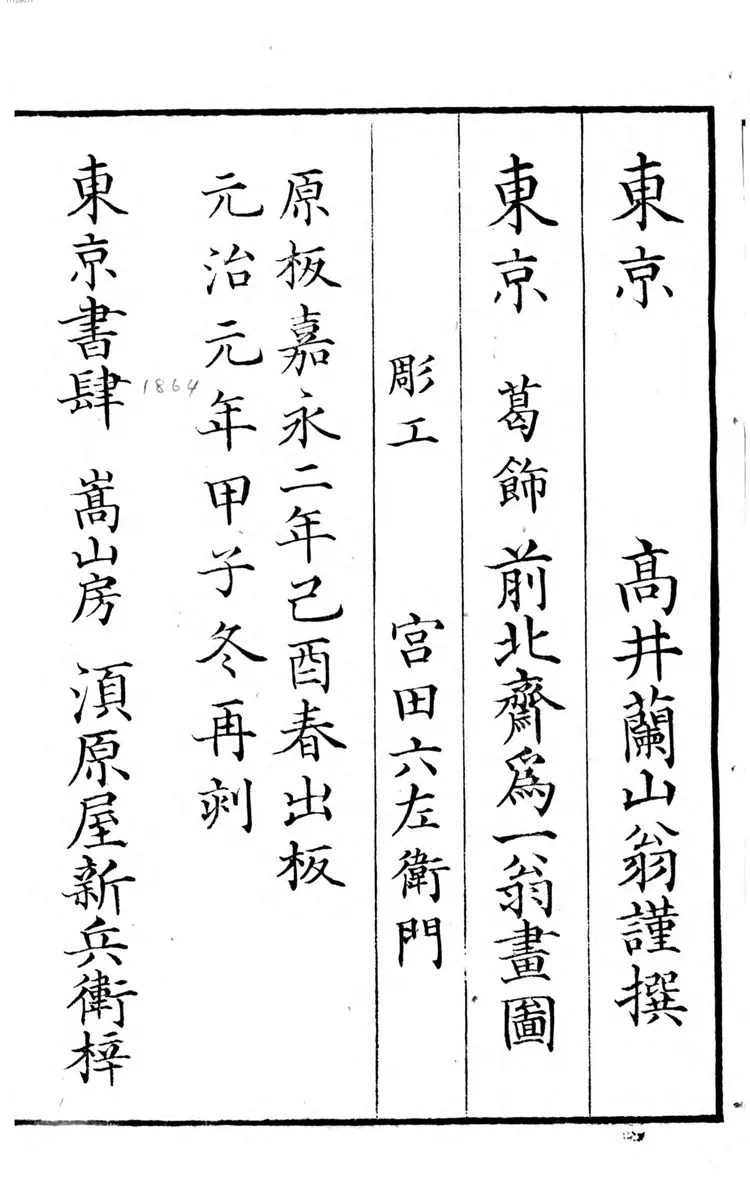 東京 髙井蘭山翁謹撰
東京 葛飾前北齋爲一翁畫圖
彫工 宮田六左衛門
原板嘉永二年己酉春出板
元治元年甲子冬再刻
1864
東京書肆 嵩山房 須原屋新兵衛梓